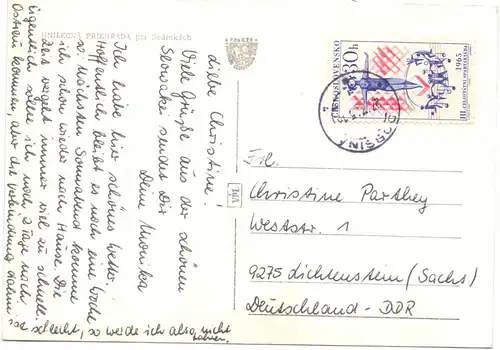 HNILECNÁ PRIEHRADA pri Dedinkách
Liebe Christine!
Viele Grüße aus der schönen
Slowakei sendet Dir
Deine Monika
Ich habe hier schönes Wetter.
Hoffentlich bleibt es noch eine Woche
so. Nächsten Sonnabend komme
ich schon wieder nach Hause. Die
Zeit vergeht immer viel zu schnell.
Irgendwie sehne ich mich
Ostrau kommen, aber die Verbindung
ist schlecht, so werde ich also nicht
fahren.
ČESKOSLOVENSKO
30h
1965
III. CELOSTÁTNÍ SPARTAKIÁDA
Frl.
Christine Parthey
Weststr. 1
9275 Lichtenstein (Sachs)
Deutschland - DDR